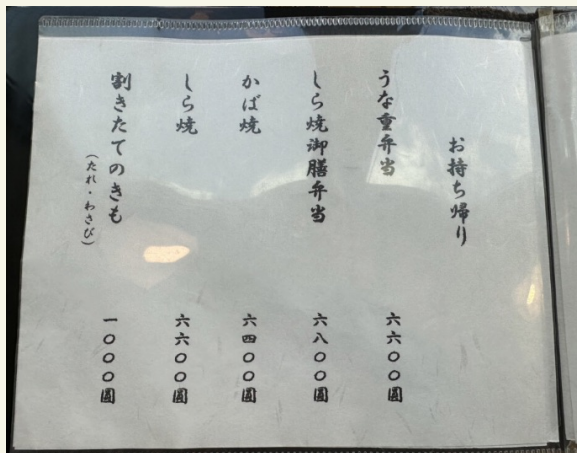 お持ち帰り
うな重弁当 六六〇〇圓
しら焼御膳弁当 六八〇〇圓
かば焼 六四〇〇圓
しら焼 六六〇〇圓
割きたてのきも 一〇〇〇圓
(たれ・わさび)